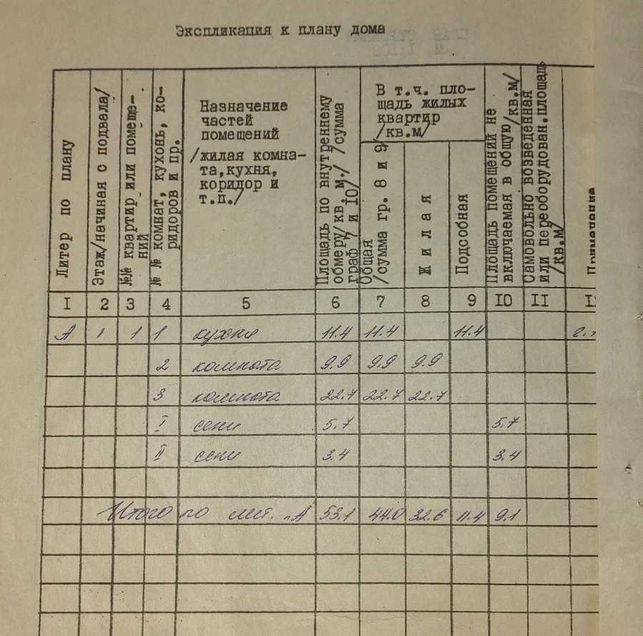 Экспликация к плану дома
Литер по плану
Этаж/начиная с подвала/
№№ квартир или помещений
№ № комнат, кухонь, коридоров и пр.
Назначение
частей
помещений
/жилая комна-
та,кухня,
коридор и
т.п./
Площадь по внутреннему
обмеру/кв. м./ /сумма
граф 7 и 10/
В т.ч. пло-
щадь жилых
квартир
/кв.м/
Общая
/сумма гр. 8 и 9/
Жилая
Подсобная
Площадь помещений не
включаемая в общую/кв.м/
Самовольно возведенная
или переоборудован.площадь
/кв.м/
I 2 3 4 5 6 7 8 9 10 II
А I 1 1 кухня 11.4 11.4 11.4
2 комната 9.9 9.9 9.9
3 комната 22.7 22.7 22.7
I сени 5.7 5.7
II сени 3.4 3.4
Итого по лит. "А 53.1 44.0 32.6 11.4 9.1